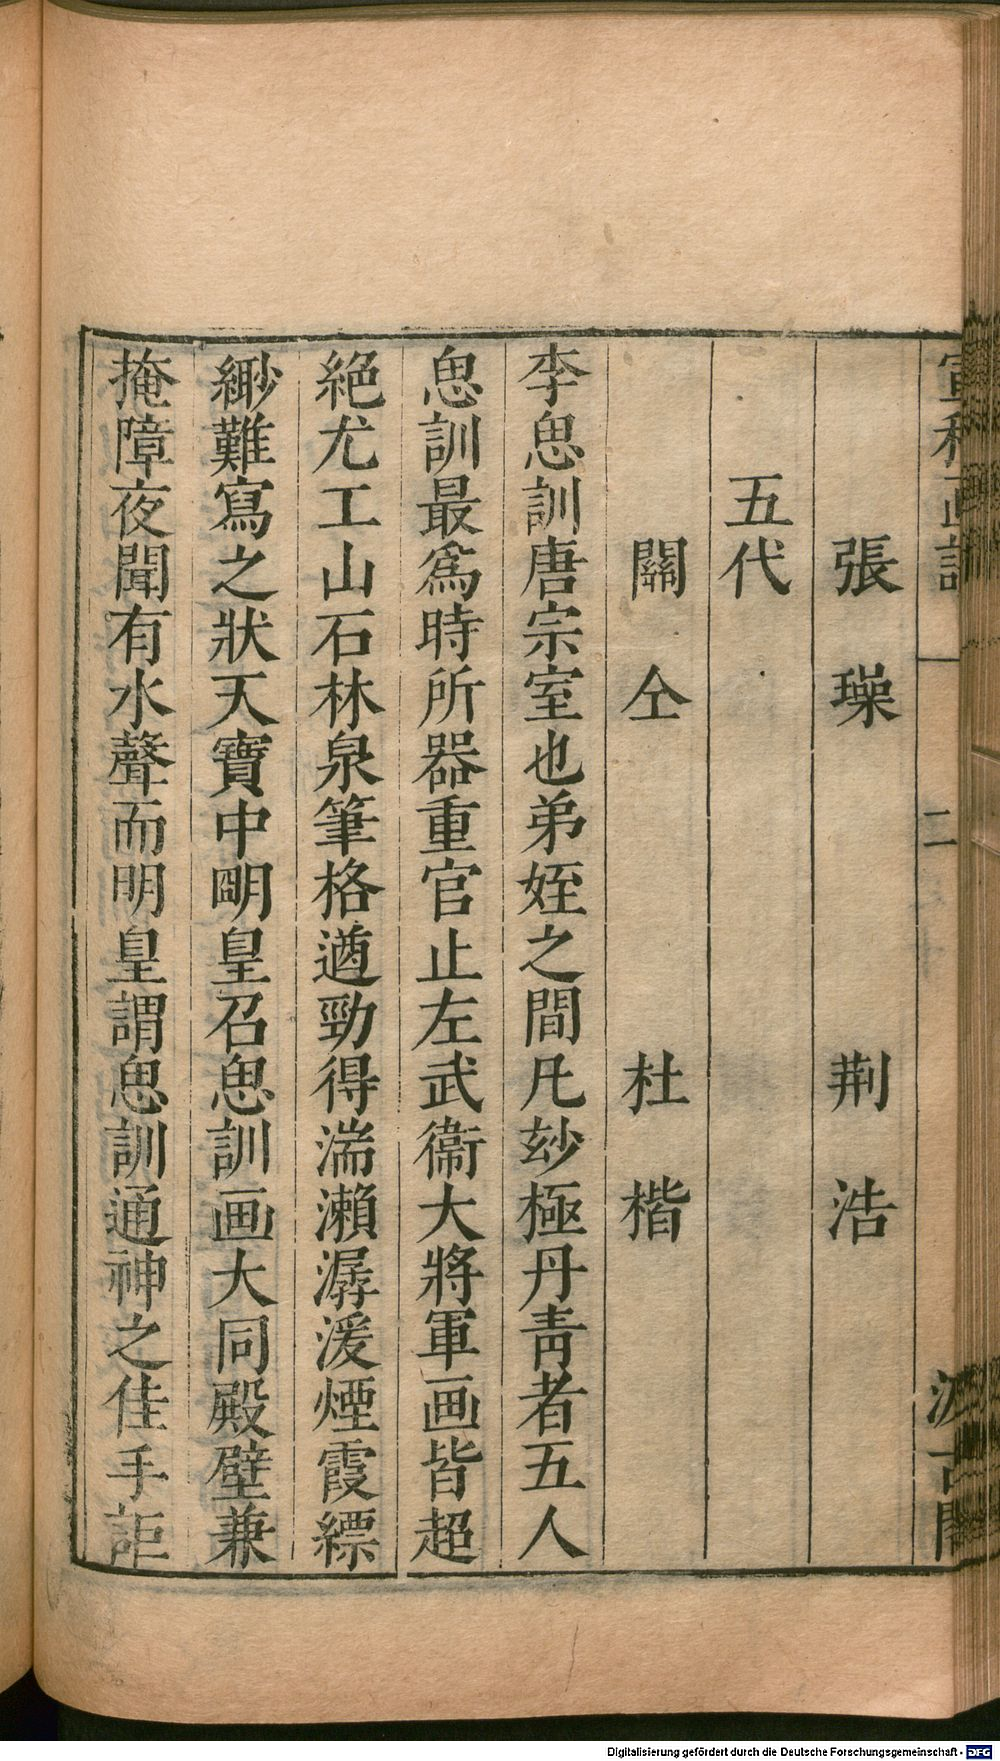 宣和画譜 二 汲古閣
張璪 荆浩
五代
關仝 杜楷
李思訓唐宗室也弟姪之間凡玅極丹青者五人
思訓最爲時所器重官止左武衞大將軍画皆超
絶尤工山石林泉筆格遒勁得湍瀨潺湲煙霞縹
緲難寫之狀天寶中明皇召思訓画大同殿壁兼
掩障夜聞有水聲而明皇謂思訓通神之佳手詎
Digitalisierung gefördert durch die Deutsche Forschungsgemeinschaft - DFG